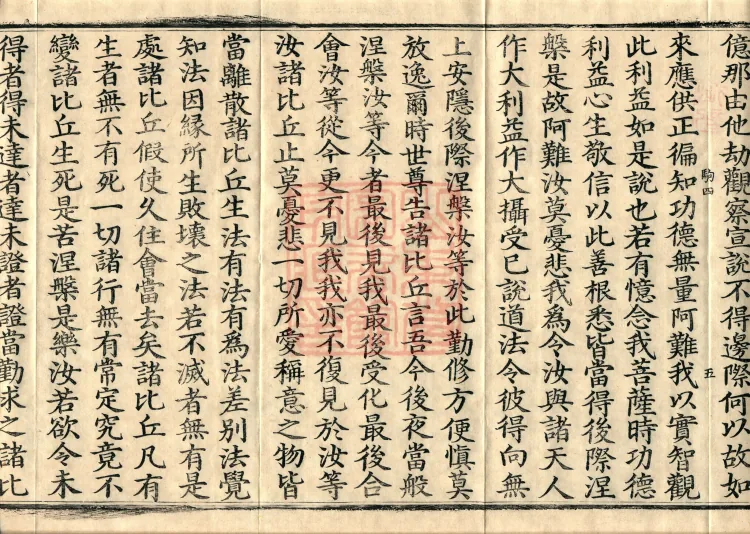 億那由他劫觀察宣說不得邊際何以故如
來應供正徧知功德無量阿難我以實智觀
駒四
五
此利益如是說也若有憶念我菩薩時功德
利益心生敬信以此善根悉皆當得後際涅
槃是故阿難汝莫憂悲我為今汝與諸天人
作大利益作大攝受已說道法令彼得向無
上安隱後際涅槃汝等於此勤修方便慎莫
放逸爾時世尊告諸比丘言吾今後夜當般
涅槃汝等今者最後見我最後受化最後合
會汝等從今更不見我我亦不復見於汝等
汝諸比丘止莫憂悲一切所愛稱意之物皆
當離散諸比丘生法有法有為法差別法覺
知法因緣所生敗壞之法若不滅者無有是
處諸比丘假使久住會當去矣諸比丘凡有
生者無不有死一切諸行無有常定究竟不
變諸比丘生死是苦涅槃是樂汝若欲令未
得者得未達者達未證者證當勤求之諸比